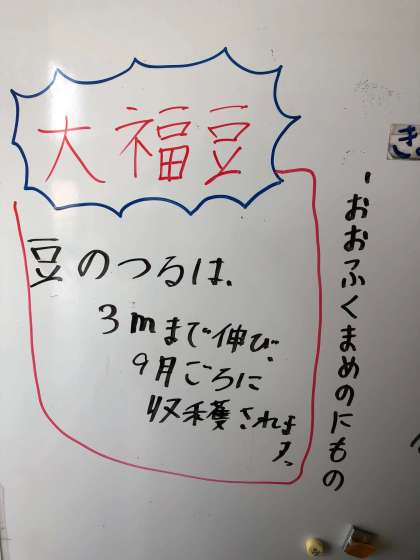 大福豆
豆のつるは、
3mまで伸び、
9月ごろに
収穫されます。
・おおふくまめのにもの
き